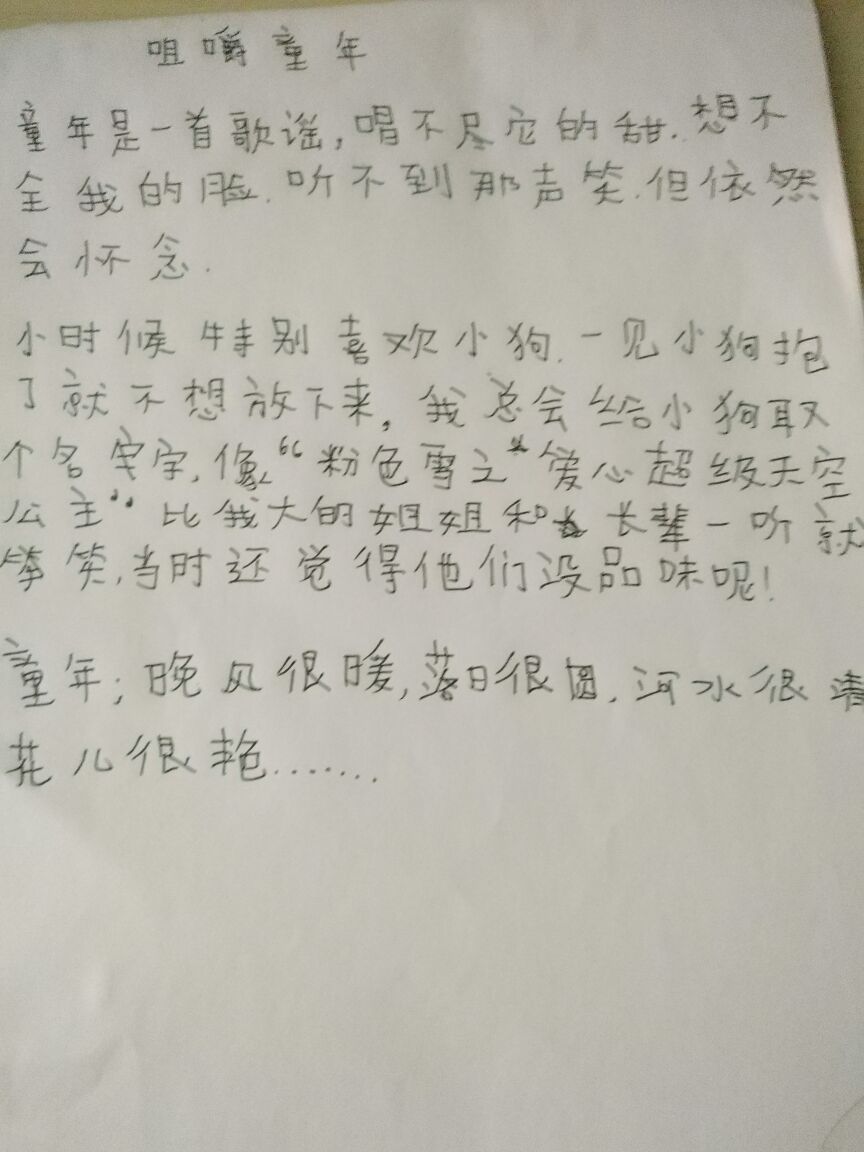 咀嚼童年
童年是一首歌谣,唱不尽它的甜.想不
全我的脸.听不到那声笑.但依然
会怀念.
小时候特别喜欢小狗.一见小狗抱
了就不想放下来,我总会给小狗取
个名字,像“粉色雪之爱心超级天空
公主”比我大的姐姐和长辈一听就
笑,当时还觉得他们没品味呢!
童年;晚风很暖,落日很圆.河水很清
花儿很艳.......